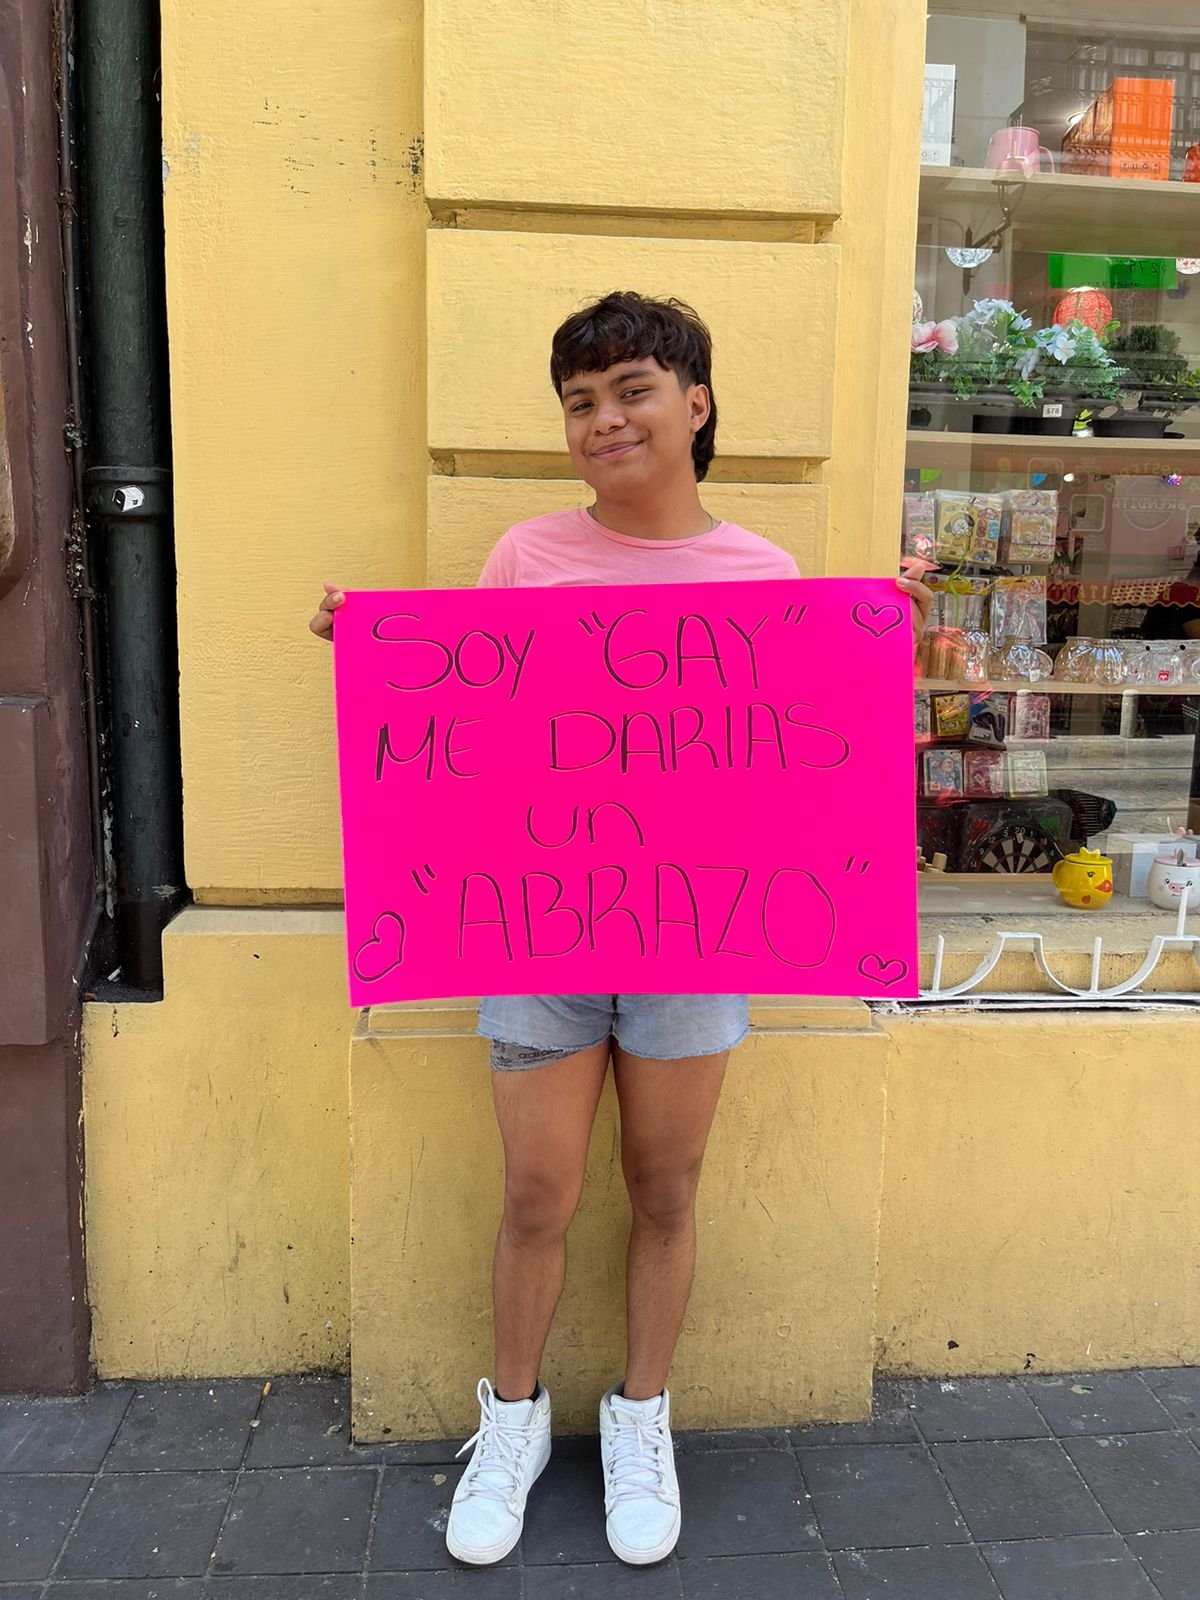 SOY "GAY"
ME DARIAS
un
"ABRAZO"
adidas
$78